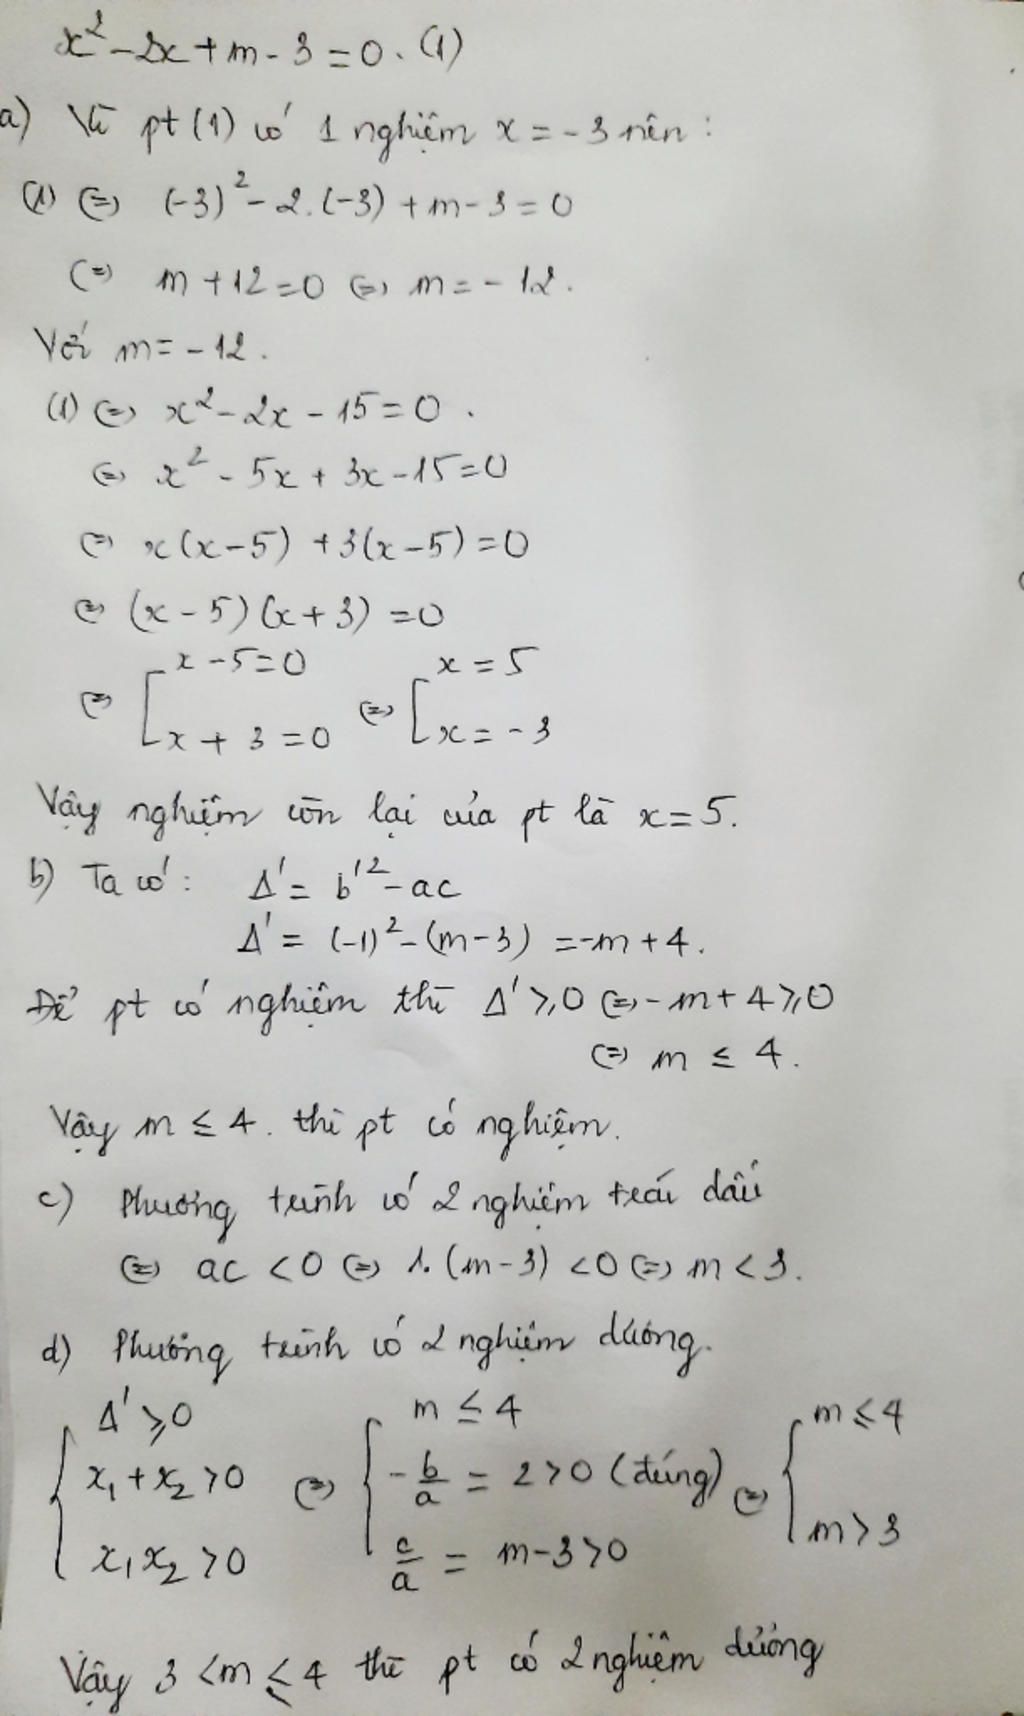 x² - 2x + m - 3 = 0. (1)
a) Vì pt (1) có 1 nghiệm x = -3 nên :
(1) (=) (-3)² - 2.(-3) + m - 3 = 0
(=) m + 12 = 0 (=) m = - 12.
Với m = - 12.
(1) (=) x² - 2x - 15 = 0.
(=) x² - 5x + 3x - 15 = 0
(=) x(x - 5) + 3(x - 5) = 0
(=) (x - 5)(x + 3) = 0
(=) [ x - 5 = 0 (=) [ x = 5
x + 3 = 0 x = - 3
Vậy nghiệm còn lại của pt là x = 5.
b) Ta có : Δ' = b'² - ac
Δ' = (-1)² - (m - 3) = -m + 4.
Để pt có nghiệm thì Δ' ≥ 0 (=) - m + 4 ≥ 0
(=) m ≤ 4.
Vậy m ≤ 4. thì pt có nghiệm.
c) Phương trình có 2 nghiệm trái dấu
(=) ac < 0 (=) 1. (m - 3) < 0 (=) m < 3.
d) Phương trình có 2 nghiệm dương.
{ Δ' ≥ 0 { m ≤ 4 { m ≤ 4
x₁ + x₂ > 0 (=) - b/a = 2 > 0 (đúng) (=)
x₁x₂ > 0 c/a = m - 3 > 0 m > 3
Vậy 3 < m ≤ 4 thì pt có 2 nghiệm dương